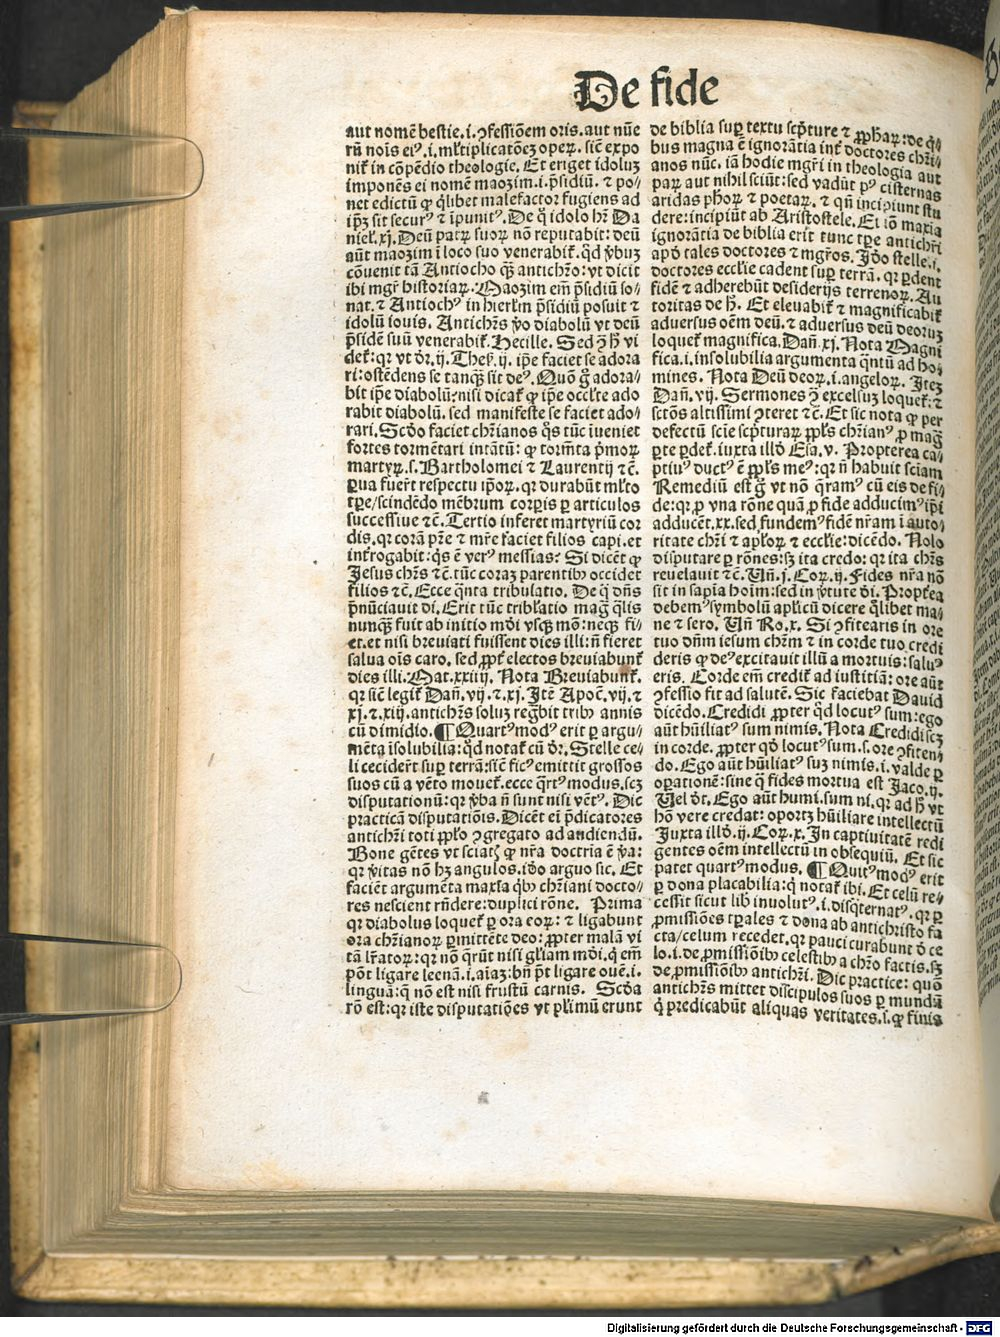 De fide
aut nomē bestie.i.ɔfessiōem oris.aut nūe
rū noīs eiꝰ.i.ml̃tiplicatōeꝫ opeꝝ. siē expo
nit̃ in cōpēdio theologie. Et eriget idoluꝫ
imponēs ei nomē maoꝫim.i.p̃sidiū. ⁊ po⸗
net edictū ꝙ q̄libet malefactor fugiens ad
ip̄ꝫ sit securꝰ ⁊ īpunitꝰ. De q̄ idolo hr̄ Da
niel̃.xj. Deū patꝝ suoꝝ nō reputabit: deū
aūt maoꝫim ī loco suo venerabit̃. qd̄ v̄buꝫ
cōuenit tā Antiocho qꝫ̄ antichr̄o: vt dicit
ibi mgr̄ historiaꝝ. Maoꝫim em̄ p̄sidiū so⸗
nat. ⁊ Antiochꝰ in hierl̃m p̄sidiū posuit ⁊
idolū iouis. Antichr̄s v̄o diabolū vt deū
p̄sidē suū venerabit̃. Hec ille. Sed ɔ̄ h̄ vi
det̃: qꝛ vt dr̄.ij. Thes̃.ij. ip̄e faciet se adora
ri: ostēdens se tanqꝫ̄ sit deꝰ. Quō g̊ adora⸗
bit ip̄e diabolū: nisi dicat̃ ꝙ ip̄e occl̃te ado
rabit diabolū. sed manifeste se faciet ado⸗
rari. Scd̄o faciet chr̄ianos q̄s tūc īueniet
fortes tormētari intātū: ꝙ torm̄ta p̄moꝝ
martyꝝ.s. Bartholomei ⁊ Laurentij ⁊c̄.
ꝑua fuer̄t respectu ip̄oꝝ. qꝛ durabūt ml̃to
tꝑe/scindēdo mēbrum corꝑis ꝑ articulos
successiue ⁊c̄. Tertio inferet martyriū cor
dis. qꝛ corā pr̄e ⁊ mr̄e faciet filios capi. et
int̃rogabit: q̄s ē verꝰ messias? Si dicēt ꝙ
Jesus chr̄s ⁊c̄. tūc coraꝫ parentibꝰ occidet
filios ⁊c̄. Ecce q̄nta tribulatio. De q̄ dn̄s
p̄nūciauit di. Erit tūc tribl̃atio mag̃ q̄lis
nunqꝫ̄ fuit ab initio mōi vsqꝫ mō: neqꝫ fi⸗
et. et nisi breuiati fuissent dies illi: n̄ fieret
salua oīs caro. sed ꝓpt̃ electos breuiabunt̃
dies illi. Mat.xxiiij. Nota Breuiabunt̃.
qꝛ siē legit̃ Dañ.vij. ⁊.xj. Itē Apoc̄.vij. ⁊
xj.⁊.xiij. antichr̄s soluꝫ reg̃bit tribꝰ annis
cū dimidio. ¶ Quartꝰ modꝰ erit ꝑ argu⸗
mēta īsolubilia: qd̄ notat̃ cū dr̄. Stelle ce⸗
li cecider̄t suꝑ terrā: siē ficꝰ emittit grossos
suos cū a vēto mouet̃. ecce q̄rtꝰ modus. scꝫ
disputationū: qꝛ v̄ba n̄ sunt nisi vētꝰ. Dic
practicā disputatiōis. Dicēt ei p̄dicatores
antichr̄i toti ꝓpl̃o ɔgregato ad audiendū.
Bone gētes vt sciatꝭ ꝙ nr̄a doctrīa ē v̄a:
qꝛ v̄itas nō hꝫ angulos. iō̄o arguo sic. Et
faciēt argumēta maxīa q̄bꝰ chr̄iani docto⸗
res nescient rn̄dere: duplici rōne. Prima
qꝛ diabolus loquet̃ ꝑ ora eoꝝ: ⁊ ligabunt
ora chr̄ianoꝝ ꝑmittēte deo: ꝓpter malā vi
tā lr̄atoꝝ: qꝛ nō q̄rūt nisi gl̃iam mōi. q̄ em̄
pōt ligare leenā.i.aīaꝫ: bn̄ pt̄ ligare ouē.i.
linguā: q̄ nō est nisi frustū carnis. Scd̄a
rō est: qꝛ iste disputatiōes vt pl̃imū erunt
de biblia suꝑ textu scp̄ture ⁊ ꝓph̄aꝝ: de q̄⸗
bus magna ē ignorātia int̃ doctores chr̄i⸗
anos nūc. iā hodie mgr̄i in theologia aut
paꝝ aut nihil sciūt: sed vadūt pꝰ cisternas
aridas ph̄oꝝ ⁊ poetaꝝ. ⁊ qn̄ incipiunt stu
dere: incipiūt ab Aristotele. Et iō maxīa
ignorātia de biblia erit tunc tꝑe antichr̄i
apd̄ tales doctores ⁊ mgr̄os. Jō̄o stelle.i.
doctores eccl̃ie cadent suꝑ terrā. qꝛ ꝑdent
fidē ⁊ adherebūt desiderijs terrenoꝝ. Au
toritas de h̄. Et eleuabit̃ ⁊ magnificabit̃
aduersus oēm deū. ⁊ aduersus deū deoruꝫ
loquet̃ magnifica. Dañ.xj. Nota Magni
fica.i.insolubilia argumenta q̄ntū ad ho⸗
mines. Nota Deū deoꝝ.i.angeloꝝ. Iteꝫ
Dañ.vij. Sermones ɔ̄ excelsuꝫ loquet̃: ⁊
sctōs altissimi ɔteret ⁊c̄. Et sic nota ꝙ per
defectū scīe scp̄turaꝝ ꝓpl̃s chr̄ianꝰ ꝓ mag̃
ꝑte ꝑdet̃. iuxta illd̄ Esa.v. Propterea ca⸗
ptiuꝰ ductꝰ ē ꝓpl̃s meꝰ: qꝛ n̄ habuit sciam
Remediū est g̊ vt nō q̄ramꝰ cū eis de fi⸗
de: qꝛ ꝓ vna rōne quā ꝓ fide adducimꝰ ip̄i
adducēt.xx. sed fundemꝰ fidē nr̄am ī auto⸗
ritate chr̄i ⁊ apl̃oꝝ ⁊ eccl̃ie: dicēdo. Nolo
disputare ꝑ rōnes: sꝫ ita credo: qꝛ ita chr̄s
reuelauit ⁊c̄. Uñ.j. Coꝝ.ij. Fides nr̄a nō
sit in sapīa hoīm: sed in v̄tute di. Propt̃ea
debemꝰ symbolū apl̃icū dicere q̄libet ma⸗
ne ⁊ sero. Uñ Ro.x. Si ɔfitearis in ore
tuo dn̄m iesum chr̄m ⁊ in corde tuo credi
deris ꝙ deꝰ excitauit illū a mortuis: saluꝰ
eris. Corde em̄ credit̃ ad iustitiā: ore aūt
ɔfessio fit ad salutē. Sic faciebat Dauid
dicēdo. Credidi ꝓpter qd̄ locutꝰ sum: ego
aūt hūiliatꝰ sum nimis. Nota Credidi scꝫ
in corde. ꝓpter qd̄ locutꝰ sum.s. ore ɔfiten⸗
do. Ego aūt hūiliatꝰ suꝫ nimis.i. valde ꝑ
oꝑationē: sine q̄ fides mortua est Jaco.ij.
Uel dt̄. Ego aūt humi. sum ni. qꝛ ad h̄ vt
hō vere credat: oportꝫ hūiliare intellectū
Juxta illd̄.ij. Coꝝ.x. In captiuitatē redi
gentes oēm intellectū in obsequiū. Et sic
patet quartꝰ modus. ¶ Quītꝰ modꝰ erit
ꝑ dona placabilia: q̄ notat̃ ibi. Et celū re⸗
cessit sicut lib̄ inuolutꝰ.i.disq̄ternatꝰ. qꝛ ꝑ
ꝓmissiōes tꝑales ⁊ dona ab antichristo fa
cta/celum recedet. qꝛ pauci curabunt d̄ ce
lo.i.de ꝓmissiōibꝰ celestibꝰ a chr̄o factis. sꝫ
de ꝓmissiōibꝰ antichr̄i. Dic practice: quō
antichr̄s mittet discipulos suos ꝑ mundū
q̄ predicabūt aliquas veritates.i.ꝙ finis
Digitalisierung gefördert durch die Deutsche Forschungsgemeinschaft - DFG